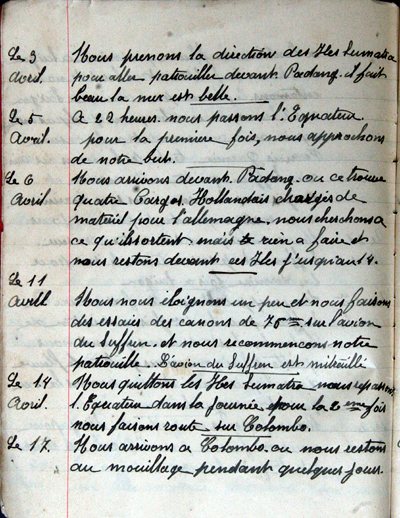 Le 3 Nous prenons la direction des Iles Sumatra
avril. pour aller patrouiller devant Padang. il fait
beau la mer est belle.
Le 5 A 22 heures nous passons l'Equateur
Avril. pour la première fois, nous approchons
de notre but.
Le 6 Nous arrivons devant Padang. ou ce trouve
Avril quatre Cargos Hollandais chargés de
materiel pour l'allemagne. nous cherchons a
ce qu'ils sortent mais rien a faire et
nous restons devant ces Iles j'usqu'au 14.
Le 11
Avril Nous nous éloignons un peu et nous faisons
des essais des canons de 75 sur l'avion
du Suffren. et nous recommencons notre
patrouille. L'avion du Suffren est mitraillé
Le 14 Nous quittons les Iles Sumatra nous repassons
Avril. l'Equateur dans la journée pour la 2eme fois
nous faisons route sur Colombo.
Le 17. Nous arrivons a Colombo. ou nous restons
au mouillage pendant quelques jours.